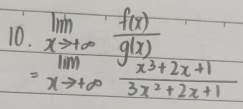 10. lim x→+∞ f(x)/g(x)
= lim x→+∞ x³+2x+1/3x²+2x+1